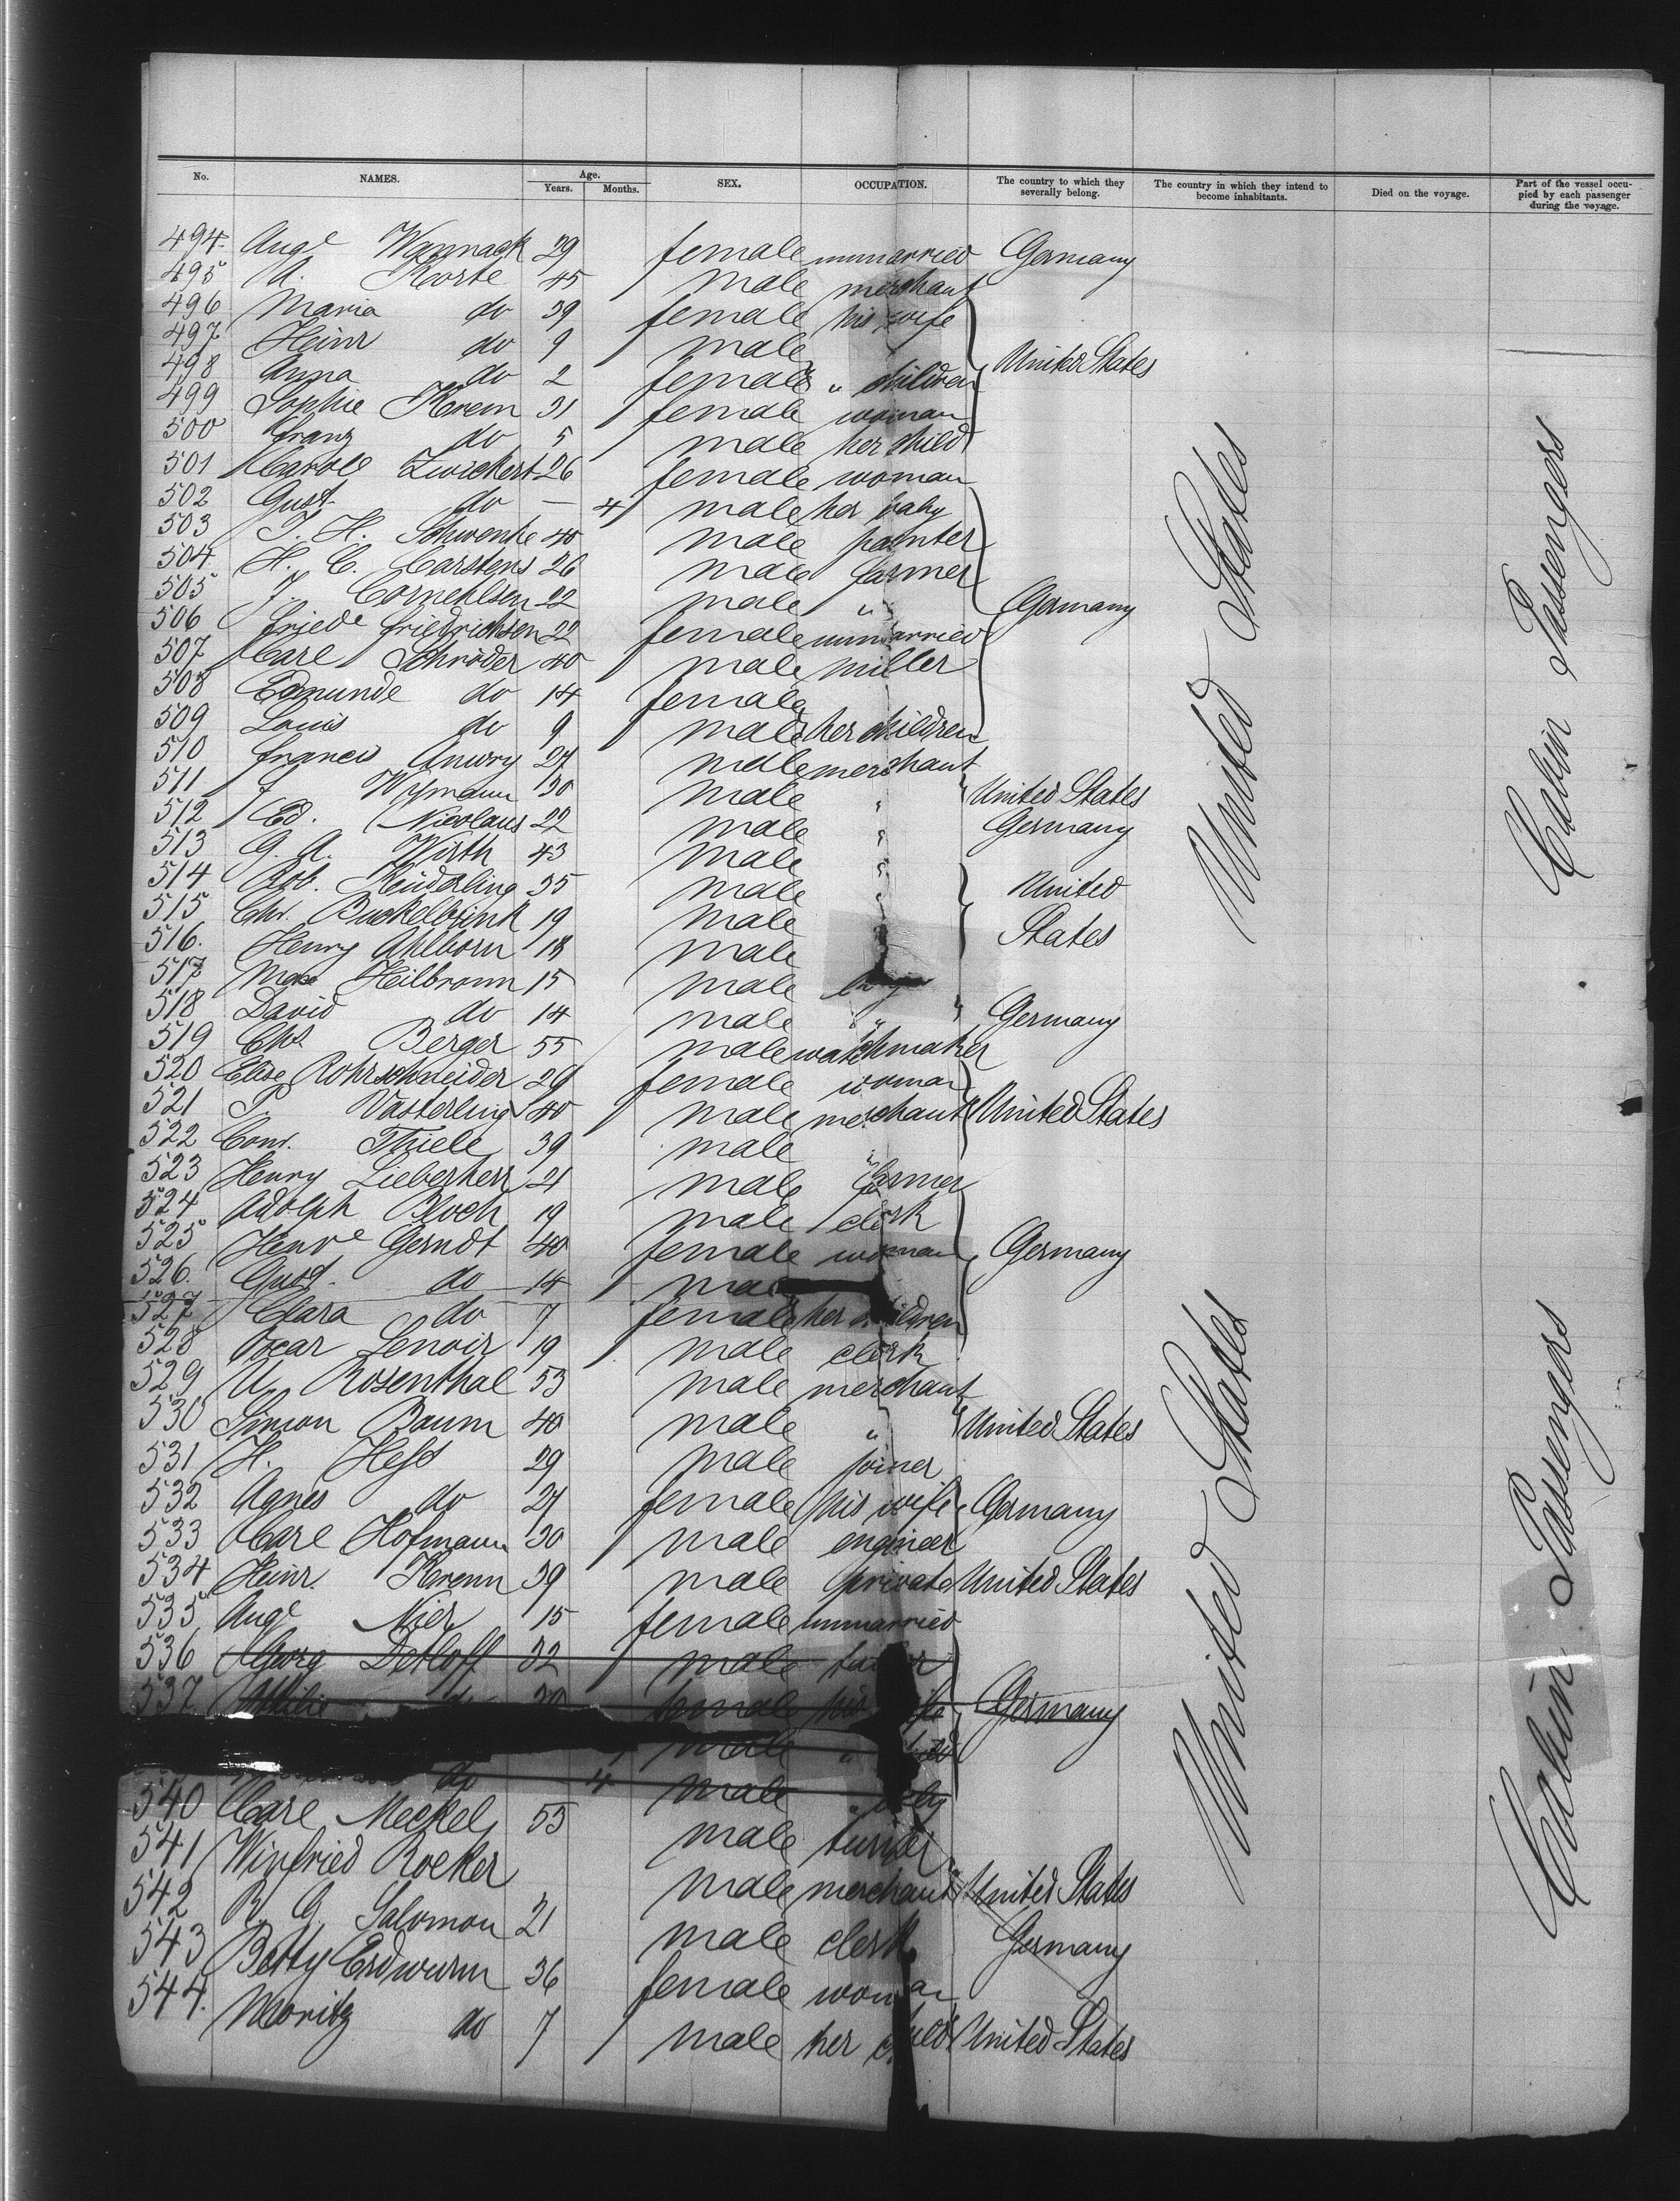 No. NAMES. Age. Years. Months. SEX. OCCUPATION. The country to which they severally belong. The country in which they intend to become inhabitants. Died on the voyage. Part of the vessel occupied by each passenger during the voyage.
494. Auge Wannack 29 female unmarried Germany
495 A. Korte 45 male merchant
496 Maria do 39 female his wife
497 Heinr do 9 male
498 Anna do 2 female " children United States
499 Sophie Krenn 31 female woman
500 Franz do 5 male her child
501 Carole Zwickert 26 female woman
502 Gust. do — 4 male her baby
503 J. H. Schwenke 40 male painter
504. H. C. Carstens 26 male farmer
505 J. Cornehlsen 22 male " Germany
506 Friede Friedrichsen 22 female unmarried
507 Carl Schröder 40 male miller
508 Edmunde do 14 female
509 Louis do 9 male her children
510 Franco 27 male merchant
511 J Wymann 30 male " United States
512 Ed. Nicolaus 22 male " Germany
513 G. A. Wirth 43 male "
514 Rob. Reuderling 35 male " United
515 Chr. Buckelbrink 19 male States
516. Henry Ahlborn 18 male
517 Max Heilbronn 15 male boy
518 David do 14 male " Germany
519 Chs. Berger 55 male watchmaker
520 Elise Rohrschneider 29 female woman
521 P. Vasterling 40 male merchant United States
522 Conr. Thiele 39 male "
523 Henry Lieberherr 21 male farmer
524 Adolph Bloch 19 male clerk
525 Henre Gerndt 40 female woman Germany
526. Gust. do 14 male
527 Clara do 7 female her children
528 Oscar Lenoir 19 male clerk
529 U. Rosenthal 53 male merchant
530 Simon Baum 40 male " United States
531 H. Hess 29 male joiner
532 Agnes do 27 female his wife Germany
533 Carl Hofmann 30 male engineer
534 Heinr. Krenn 39 male private United States
535 Auge Nier 15 female unmarried
536 Georg Detloff 32 male
537 do 30 female his wife Germany
male "
do 4 male " baby
540 Carl Meckel 55 male turner
541 Winfried Roeker male merchant United States
542 R. G. Salomon 21 male clerk Germany
543 Betty Erdwurm 36 female woman
544. Moritz do 7 male her child United States
United States
Cabin Passengers
United States
Cabin Passengers